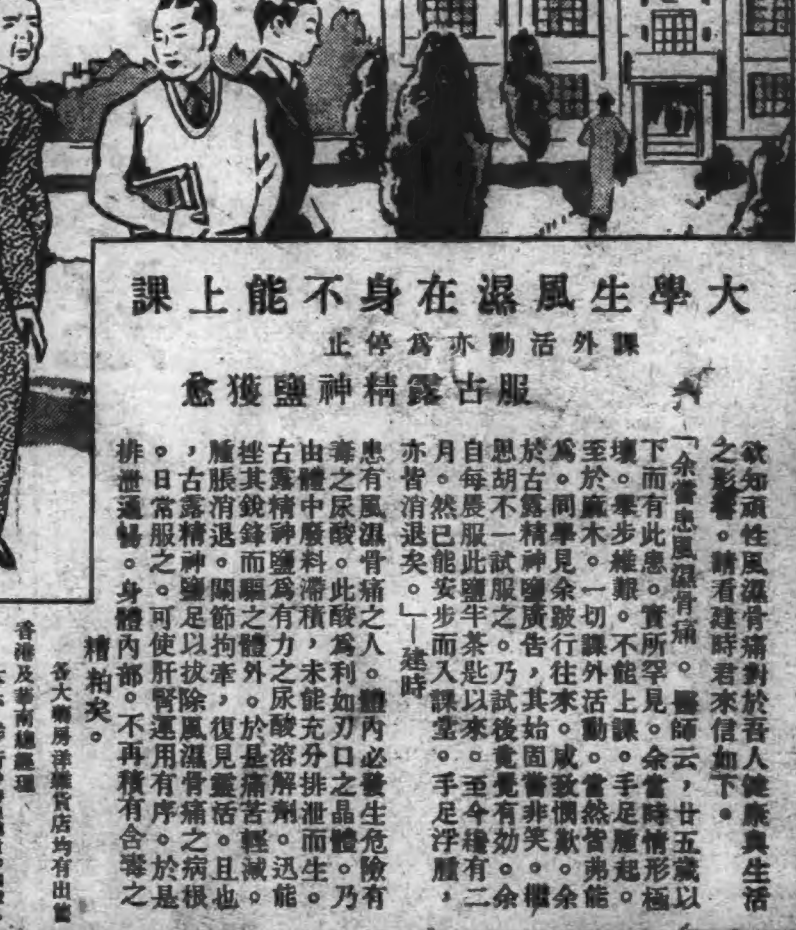 大學生風濕在身不能上課
課外活動亦爲停止
服古露精神鹽獲愈
欲知頑性風濕骨痛對於吾人健康與生活
之影響。請看建時君來信如下。
「余嘗患風濕骨痛。醫師云，廿五歲以
下而有此患。實所罕見。余當時情形極
壞。舉步維艱。不能上課。手足腫起。
至於麻木。一切課外活動。當然皆弗能
爲。同學見余跛行往來。咸致憫歎。余
於古露精神鹽廣告，其始固嘗非笑。繼
思胡不一試服之。乃試後竟覺有効。余
自每晨服此鹽半茶匙以來。至今纔有二
月。然已能安步而入課堂。手足浮腫，
亦皆消退矣。」─建時
患有風濕骨痛之人。體內必發生危險有
毒之尿酸。此酸爲利如刃口之晶體。乃
由體中廢料滯積，未能充分排泄而生。
古露精神鹽爲有力之尿酸溶解劑。迅能
挫其銳鋒而驅之體外。於是痛苦輕減。
腫脹消退。關節拘牽，復見靈活。且也
，古露精神鹽足以拔除風濕骨痛之病根
。日常服之。可使肝腎運用有序。於是
排泄通暢。身體內部。不再積有含毒之
糟粕矣。
各大藥房洋雜貨店均有出售
香港及華南總經理